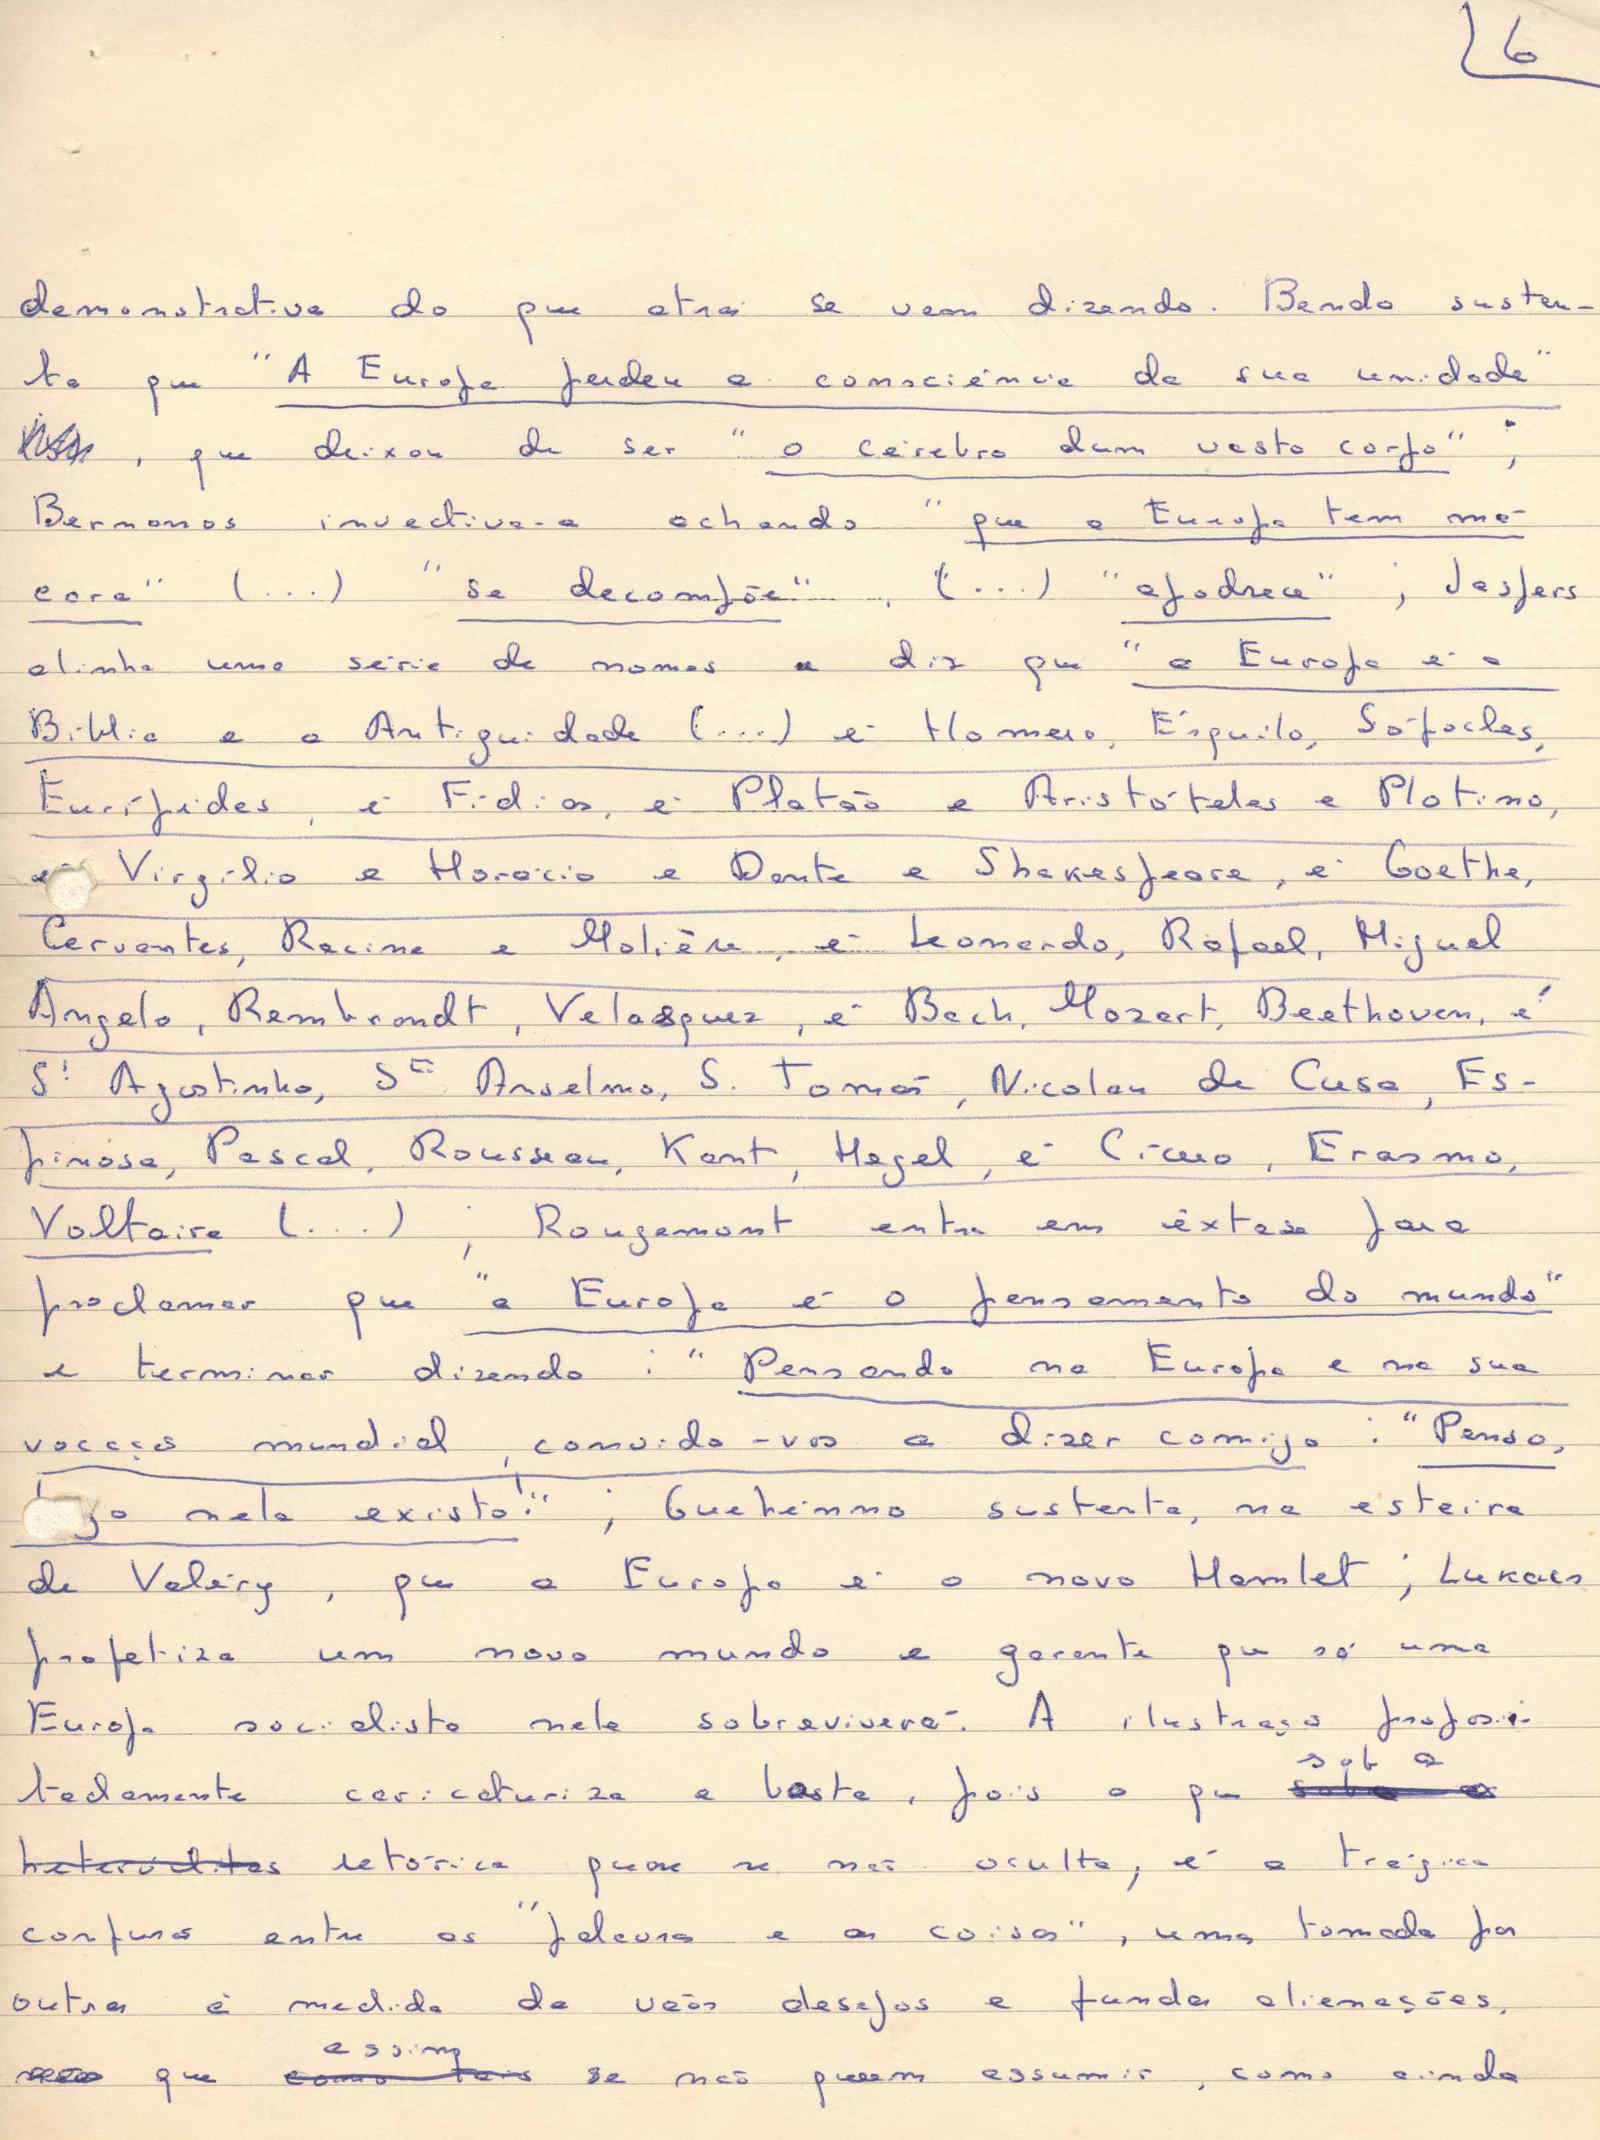 6
demonstrativa do que atrás se vem dizendo. Benda susten-
ta que "A Europa perdeu a consciência da sua unidade"
, que deixou de ser "o cérebro dum vasto corpo";
Bernanos invectiva-a achando "que a Europa tem má
cara" (...) "se decompõe", (...) "apodrece"; Jaspers
alinha uma série de nomes e diz que "a Europa é a
Bíblia e a Antiguidade (...) é Homero, Ésquilo, Sófocles,
Eurípides, é Fídias, é Platão e Aristóteles e Plotino,
é Virgílio e Horácio e Dante e Shakespeare, é Goethe,
Cervantes, Racine e Molière, é Leonardo, Rafael, Miguel
Angelo, Rembrandt, Velasquez, é Bach, Mozart, Beethoven, é
Stº Agostinho, Stº Anselmo, S. Tomás, Nicolau de Cusa, Es-
pinosa, Pascal, Rousseau, Kant, Hegel, é Cícero, Erasmo,
Voltaire (...); Rougemont entra em êxtase para
proclamar que "a Europa é o pensamento do mundo"
e terminar dizendo: "Pensando na Europa e na sua
vocação mundial, convido-vos a dizer comigo: "Penso,
logo nela existo!"; Guehénno sustenta, na esteira
de Valéry, que a Europa é o novo Hamlet; Lukacs
profetiza um novo mundo e garante que só uma
Europa socialista nele sobreviverá. A ilustração proposi-
tadamente caricaturiza e basta, pois o que sob a
heteróclitas retórica quase se não oculta, é a trágica
confusão entre as "palavras e as coisas", umas tomadas por
outras à medida de vãos desejos e fundas alienações,
que assim se não querem assumir, como ainda